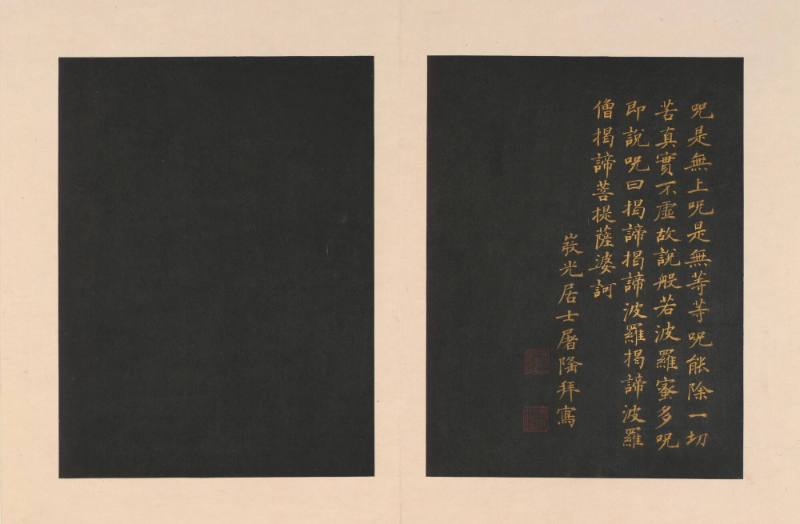 呪是無上呪是無等等呪能除一切
苦真實不虛故說般若波羅蜜多呪
即說呪曰揭諦揭諦波羅揭諦波羅
僧揭諦菩提薩婆訶
𡹬光居士屠隆拜寫